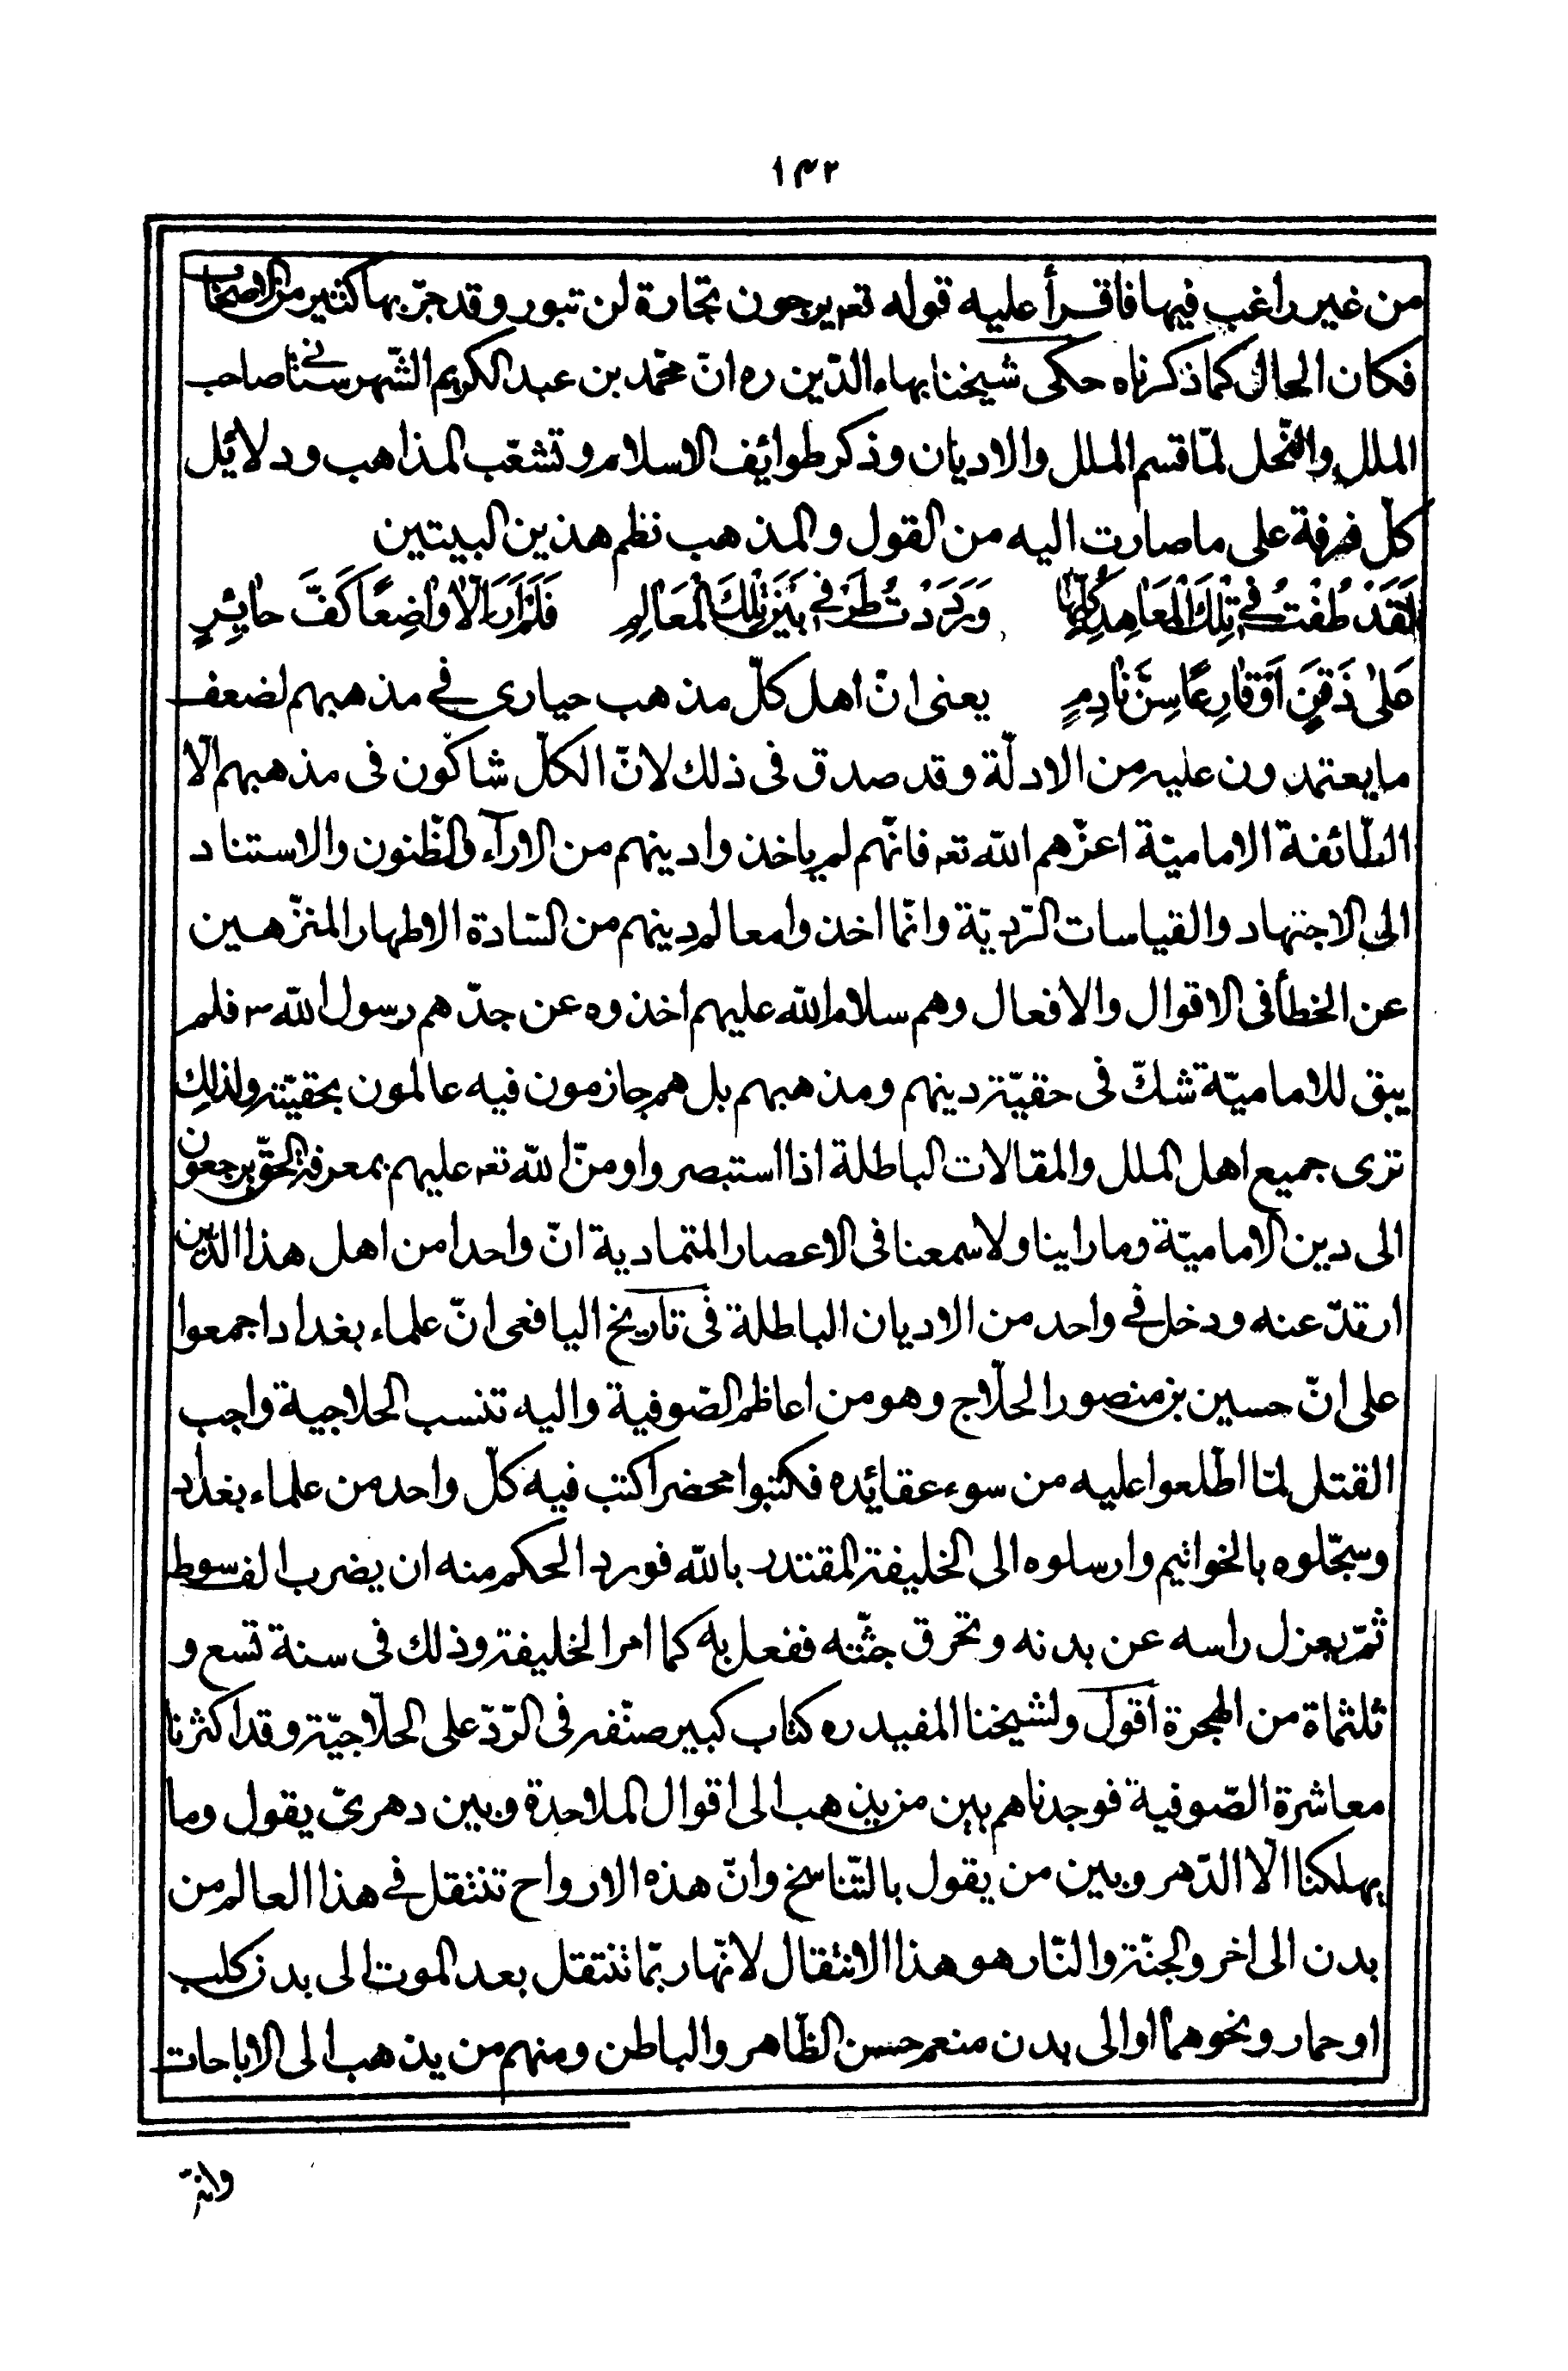 ١٤٢
من غير راغب فيها فاقرأ عليه قوله تعه يرجون تجارة لن تبور وقد جرّب بها كثير من الاصحاب
فكان الحال كما ذكرناه حكى شيخنا بهاء الدّين ره انّ محمّد بن عبد الكريم الشّهرستاني صاحب
الملل والنّحل لمّا قسم الملل والاديان وذكر طوايف الاسلام وتشعّب المذاهب ودلايل
كلّ فرقة على ما صارت اليه من القول والمذهب نظم هذين البيتين
لَقَدْ طُفْتُ فِي تِلْكَ الْمَعَاهِدِ كُلِّهَا وَرَدَّدْتُ طَرْفِي بَيْنَ تِلْكَ الْمَعَالِمِ فَلَمْ أَرَ إِلَّا وَاضِعًا كَفَّ حَائِرٍ
عَلَى ذَقَنٍ أَوْ قَارِعًا سِنَّ نَادِمٍ يعنى انّ اهل كلّ مذهب حيارى في مذهبهم لضعف
ما يعتمدون عليه من الادلّة وقد صدق فى ذلك لانّ الكلّ شاكّون فى مذهبهم الّا
الطّائفة الاماميّة اعزّهم الله تعه فانّهم لم ياخذوا دينهم من الارآء والظّنون والاستناد
الى الاجتهاد والقياسات الرّديّة وانّما اخذوا معالم دينهم من السّادة الاطهار المنزّهين
عن الخطأ فى الاقوال والافعال وهم سلام الله عليهم اخذوه عن جدّهم رسول الله ص فلم
يبق للاماميّة شكّ فى حقيّة دينهم ومذهبهم بل هم جازمون فيه عالمون بحقيّته ولذلك
ترى جميع اهل الملل والمقالات الباطلة اذا استبصروا ومنّ الله تعه عليهم بمعرفة الحقّ يرجعون
الى دين الاماميّة وما راينا ولا سمعنا فى الاعصار المتمادية انّ واحدا من اهل هذا الدّين
ارتدّ عنه ودخل في واحد من الاديان الباطلة فى تاريخ اليافعى انّ علماء بغداد اجمعوا
على انّ حسين بن منصور الحلّاج وهو من اعاظم الصّوفية واليه تنسب الحلاجية واجب
القتل لمّا اطّلعوا عليه من سوء عقائده فكتبوا محضرا كتب فيه كلّ واحد من علماء بغداد
وسجّلوه بالخواتيم وارسلوه الى الخليفة المقتدر بالله فورد الحكم منه ان يضرب الف سوط
ثمّ يعزل راسه عن بدنه وتحرق جثّته ففعل به كما امر الخليفة وذلك فى سنة تسع و
ثلثماة من الهجرة اقول ولشيخنا المفيد ره كتاب كبير صنّفه فى الرّدّ على الحلّاجيّة وقد اكثرنا
معاشرة الصّوفية فوجدناهم بين من يذهب الى اقوال الملاحدة وبين دهرىّ يقول وما
يهلكنا الّا الدّهر وبين من يقول بالتّناسخ وانّ هذه الارواح تنتقل في هذا العالم من
بدن الى اخر والجنّة والنّار هو هذا الانتقال لانّها ربّما تنتقل بعد الموت الى بدن كلب
او حمار ونحوهما او الى بدن منعم حسن الظّاهر والباطن ومنهم من يذهب الى الاباحات
وانّه